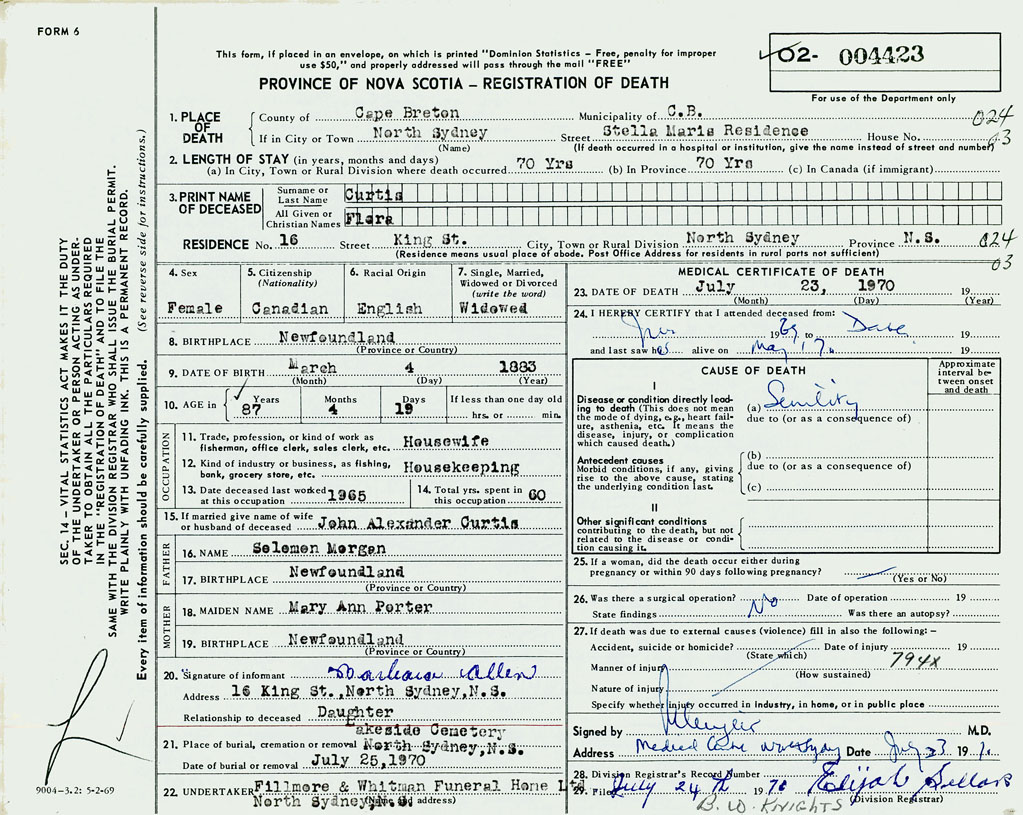 FORM 6
This form, if placed in an envelope, on which is printed "Dominion Statistics – Free, penalty for improper
use $50," and properly addressed will pass through the mail "FREE"
PROVINCE OF NOVA SCOTIA – REGISTRATION OF DEATH
O2- 004423
For use of the Department only
1. PLACE OF DEATH
County of Cape Breton Municipality of C.B. 024
If in City or Town North Sydney Street Stella Maris Residence House No. 03
(Name) (If death occurred in a hospital or institution, give the name instead of street and number)
2. LENGTH OF STAY (in years, months and days)
(a) In City, Town or Rural Division where death occurred 70 Yrs (b) In Province 70 Yrs (c) In Canada (if immigrant)
3. PRINT NAME OF DECEASED
Surname or Last Name Curtis
All Given or Christian Names Flora
RESIDENCE No. 16 Street King St. City, Town or Rural Division North Sydney Province N.S. 024
(Residence means usual place of abode. Post Office Address for residents in rural parts not sufficient) 03
4. Sex Female
5. Citizenship (Nationality) Canadian
6. Racial Origin English
7. Single, Married, Widowed or Divorced (write the word) Widowed
8. BIRTHPLACE Newfoundland
(Province or Country)
9. DATE OF BIRTH March 4 1883
(Month) (Day) (Year)
10. AGE in Years 87 Months 4 Days 19 If less than one day old
hrs. or min.
OCCUPATION
11. Trade, profession, or kind of work as fisherman, office clerk, sales clerk, etc. Housewife
12. Kind of industry or business, as fishing, bank, grocery store, etc. Housekeeping
13. Date deceased last worked at this occupation 1965
14. Total yrs. spent in this occupation 60
15. If married give name of wife or husband of deceased John Alexander Curtis
FATHER
16. NAME Solomon Morgan
17. BIRTHPLACE Newfoundland
(Province or Country)
MOTHER
18. MAIDEN NAME Mary Ann Porter
19. BIRTHPLACE Newfoundland
(Province or Country)
20. Signature of informant Barbara Allen
Address 16 King St.,North Sydney,N.S.
Relationship to deceased Daughter
21. Place of burial, cremation or removal Lakeside Cemetery
North Sydney,N.S.
Date of burial or removal July 25,1970
22. UNDERTAKER Fillmore & Whitman Funeral Home Ltd
North Sydney,N.S.
(Name and address)
MEDICAL CERTIFICATE OF DEATH
23. DATE OF DEATH July 23, 1970 19
(Month) (Day) (Year)
24. I HEREBY CERTIFY that I attended deceased from:
1969 to Date 19
and last saw h alive on May 17 19
CAUSE OF DEATH
Approximate interval between onset and death
I
Disease or condition directly leading to death (This does not mean the mode of dying, e.g., heart failure, asthenia, etc. It means the disease, injury, or complication which caused death.)
(a) Senility
due to (or as a consequence of)
Antecedent causes
Morbid conditions, if any, giving rise to the above cause, stating the underlying condition last.
(b)
due to (or as a consequence of)
(c)
II
Other significant conditions
contributing to the death, but not related to the disease or condition causing it.
25. If a woman, did the death occur either during
pregnancy or within 90 days following pregnancy?
(Yes or No)
26. Was there a surgical operation? No Date of operation 19
State findings Was there an autopsy?
27. If death was due to external causes (violence) fill in also the following: –
Accident, suicide or homicide? Date of injury 19
(State which) 794X
Manner of injury
(How sustained)
Nature of injury
Specify whether injury occurred in industry, in home, or in public place
Signed by M.D.
Address Medical Date July 23 1970
28. Division Registrar's Record Number
29. Filed July 24th 1970 Elijah Sellars
(Division Registrar)
B. W. KNIGHTS
SEC. 14 – VITAL STATISTICS ACT MAKES IT THE DUTY
OF THE UNDERTAKER OR PERSON ACTING AS UNDER-
TAKER TO OBTAIN ALL THE PARTICULARS REQUIRED
IN THE "REGISTRATION OF DEATH" AND TO FILE THE
SAME WITH THE DIVISION REGISTRAR WHO SHALL ISSUE THE BURIAL PERMIT.
WRITE PLAINLY WITH UNFADING INK. THIS IS A PERMANENT RECORD.
Every item of information should be carefully supplied. (See reverse side for instructions.)
9004-3.2: 5-2-69